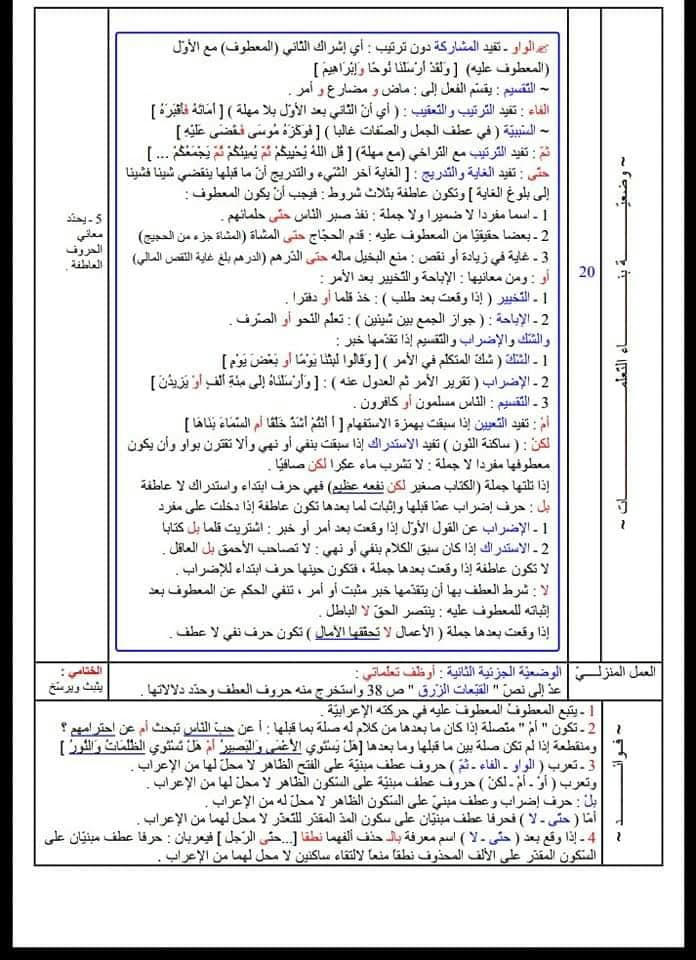 الواو ـ تفيد المشاركة دون ترتيب : أي إشراك الثاني (المعطوف) مع الأوّل
(المعطوف عليه) [ وَلَقَدْ أَرْسَلْنَا نُوحًا وَإِبْرَاهِيمَ ]
~ التّقسيم : يقسّم الفعل إلى : ماض و مضارع و أمر .
الفاء : تفيد التّرتيب والتّعقيب : ( أي أنّ الثّاني بعد الأوّل بلا مهلة ) [ أَمَاتَهُ فَأَقْبَرَهُ ]
~ السّببيّة ( في عطف الجمل والصّفات غالبا ) [ فَوَكَزَهُ مُوسَى فَقَضَى عَلَيْهِ ]
ثمّ : تفيد الترتيب مع التراخي (مع مهلة) [ قُلِ اللهُ يُحْيِيكُمْ ثُمَّ يُمِيتُكُمْ ثُمَّ يَجْمَعُكُمْ ... ]
حتّى : تفيد الغاية والتّدريج : [ الغاية آخر الشّيء والتدريج أنّ ما قبلها ينقضي شيئا فشيئا
إلى بلوغ الغاية ] وتكون عاطفة بثلاث شروط : فيجب أنْ يكون المعطوف :
1 ـ اسما مفردا لا ضميرا ولا جملة : نفذ صبر النّاس حتّى حلمائهم .
2 ـ بعضا حقيقيّا من المعطوف عليه : قدم الحجّاج حتى المشاة (المشاة جزء من الحجيج)
3 ـ غاية في زيادة أو نقص : منع البخيل ماله حتى الدّرهم (الدرهم بلغ غاية النّقص المالي)
أو : ومن معانيها : الإباحة والتّخيير بعد الأمر :
1 ـ التّخيير ( إذا وقعت بعد طلب ) : خذ قلما أو دفترا .
2 ـ الإباحة : ( جواز الجمع بين شيئين ) : تعلم النّحو أو الصّرف .
والشّكّ والإضراب والتّقسيم إذا تقدّمها خبر :
1 ـ الشّكّ ( شكّ المتكلّم في الأمر ) [ وَقَالُوا لَبِثْنَا يَوْمًا أَو بَعْضَ يَوْمٍ ]
2 ـ الإضراب ( تقرير الأمر ثم العدول عنه ) : [ وَأَرْسَلْنَاهُ إِلَى مِئَةِ أَلْفٍ أَوْ يَزِيدُنَ ]
3 ـ التّقسيم : النّاس مسلمون أو كافرون .
أمْ : تفيد التّعيين إذا سبقت بهمزة الاستفهام [ أَ أَنْتُمْ أَشَدُّ خَلْقًا أَمِ السَّمَاءَ بَنَاهَا ]
لكنْ : ( ساكنة النّون ) تفيد الاستدراك إذا سبقت بنفي أو نهي وألا تقترن بواو وأن يكون
معطوفها مفردا لا جملة : لا تشرب ماء عكرا لكن صافيّا .
إذا تلتها جملة (الكتاب صغير لكن نفعه عظيم) فهي حرف ابتداء واستدراك لا عاطفة
بل : حرف إضراب عمّا قبلها وإثبات لما بعدها تكون عاطفة إذا دخلت على مفرد
1 ـ الإضراب عن القول الأوّل إذا وقعت بعد أمر أو خبر : اشتريت قلما بل كتابا
2 ـ الاستدراك إذا كان سبق الكلام بنفي أو نهي : لا تصاحب الأحمق بل العاقل .
لا تكون عاطفة إذا وقعت بعدها جملة ، فتكون حينها حرف ابتداء للإضراب .
لا : شرط العطف بها أن يتقدّمها خبر مثبت أو أمر ، تنفي الحكم عن المعطوف بعد
إثباته للمعطوف عليه : ينتصر الحقّ لا الباطل .
إذا وقعت بعدها جملة ( الأعمال لا تحققها الآمال ) تكون حرف نفي لا عطف .
5 ـ يحدّد
معاني
الحروف
العاطفة .
20
~ وضعيّة بناء التّعلّمات ~
العمل المنزليّ
الوضعيّة الجزئية الثانية : أوظف تعلماتي :
عدْ إلى نصّ " القبّعات الزّرق " ص 38 واستخرج منه حروف العطف وحدّد دلالاتها .
الختامي :
يثبت ويرسّخ
~ فوائد ~
1 ـ يتبع المعطوفُ المعطوفَ عليه في حركته الإعرابيّة .
2 ـ تكون " أمْ " متّصلة إذا كان ما بعدها من كلام له صلة بما قبلها : أ عن حبّ النّاس تبحث أم عن احترامهم ؟
ومنقطعة إذا لم تكن صلة بين ما قبلها وما بعدها [هَلْ يَسْتَوِي الأَعْمَى وَالْبَصِيرُ أَمْ هَلْ تَسْتَوِي الظُّلُمَاتُ وَالنُّورُ ]
3 ـ تعرب ( الواو ـ الفاء ـ ثمّ ) حروف عطف مبنيّة على الفتح الظاهر لا محلّ لها من الإعراب .
وتعرب ( أوْ ـ أمْ ـ لكنْ ) حروف عطف مبنيّة على السّكون الظّاهر لا محلّ لها من الإعراب .
بلْ : حرف إضراب وعطف مبنيّ على السّكون الظّاهر لا محلّ له من الإعراب .
أمّا ( حتّى ـ لا ) فحرفا عطف مبنيّان على سكون المدّ المقدّر للتّعذر لا محلّ لهما من الإعراب .
4 ـ إذا وقع بعد ( حتّى ـ لا ) اسم معرفة بالـ حذف ألفهما نطقا [...حتّى الرّجل ] فيعربان : حرفا عطف مبنيّان على
السّكون المقدّر على الألف المحذوف نطقاً منعاً لالتقاء ساكنين لا محل لهما من الإعراب .